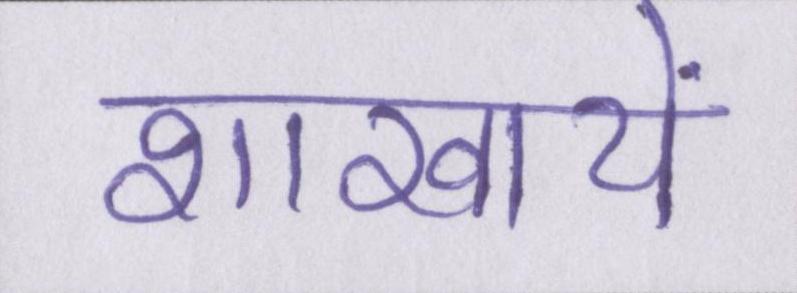 शाखायें